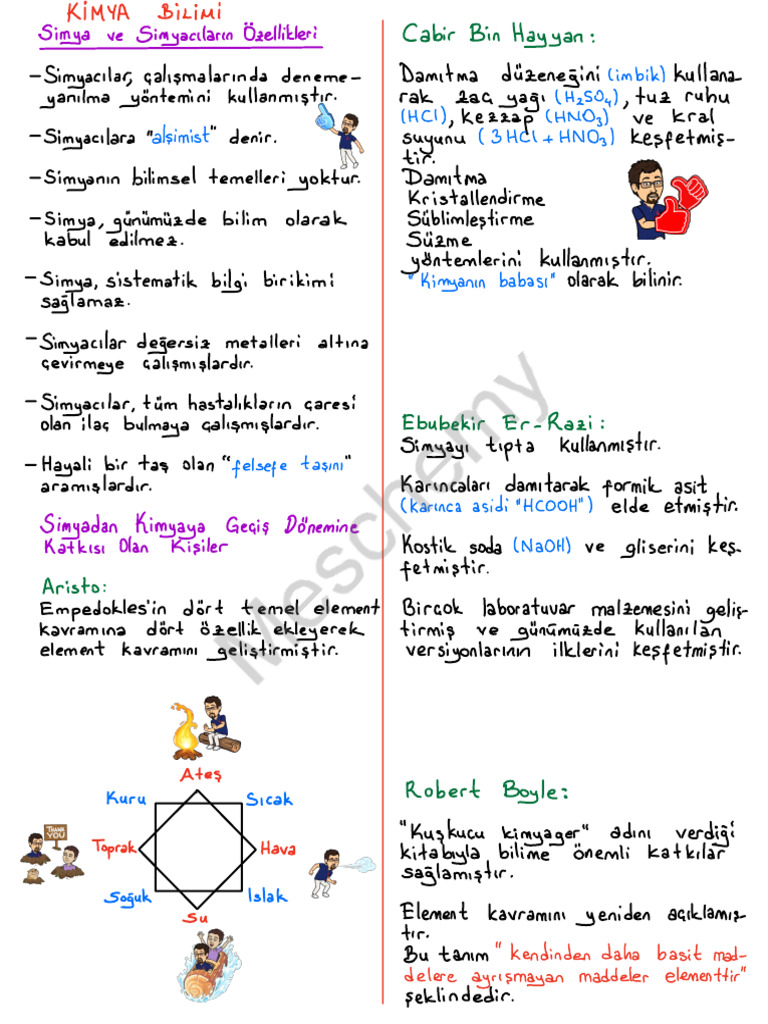 KİMYA BİLİMİ
Simya ve Simyacıların Özellikleri
-Simyacılar, çalışmalarında deneme-
yanılma yöntemini kullanmıştır.
-Simyacılara "alşimist" denir.
-Simyanın bilimsel temelleri yoktur.
-Simya, günümüzde bilim olarak
kabul edilmez.
-Simya, sistematik bilgi birikimi
sağlamaz.
-Simyacılar değersiz metalleri altına
çevirmeye çalışmışlardır.
-Simyacılar, tüm hastalıkların çaresi
olan ilaç bulmaya çalışmışlardır.
-Hayali bir taş olan "felsefe taşını"
aramışlardır.
Simyadan Kimyaya Geçiş Dönemine
Katkısı Olan Kişiler
Aristo:
Empedokles'in dört temel element
kavramına dört özellik ekleyerek
element kavramını geliştirmiştir.
Ateş
Kuru
Sıcak
THANK
YOU
Toprak
Hava
Soğuk
Islak
Su
Cabir Bin Hayyan:
Damıtma düzeneğini (imbik) kullana-
rak zaç yağı (H₂SO₄), tuz ruhu
(HCl), kezzap (HNO₃) ve kral
suyunu (3HCl + HNO₃) keşfetmiş-
tir.
Damıtma
Kristallendirme
Süblimleştirme
Süzme
yöntemlerini kullanmıştır.
"Kimyanın babası" olarak bilinir.
Ebubekir Er-Razi:
Simyayı tıpta kullanmıştır.
Karıncaları damıtarak formik asit
(karınca asidi "HCOOH") elde etmiştir.
Kostik soda (NaOH) ve gliserini keş-
fetmiştir.
Birçok laboratuvar malzemesini geliş-
tirmiş ve günümüzde kullanılan
versiyonlarının ilklerini keşfetmiştir.
Robert Boyle:
"Kuşkucu kimyager" adını verdiği
kitabıyla bilime önemli katkılar
sağlamıştır.
Element kavramını yeniden açıklamış-
tır.
Bu tanım "kendinden daha basit mad-
delere ayrışmayan maddeler elementtir"
şeklindedir.
Meschemy